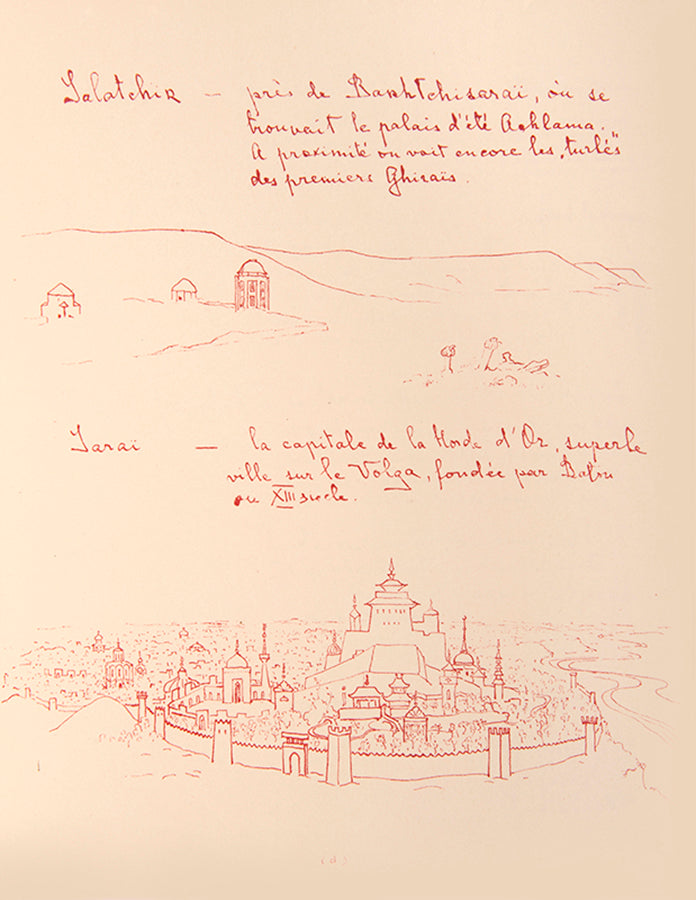 Salatchik — près de Bakhtchisaraï, où se
trouvait le palais d'été Achlama.
A proximité on voit encore les „turbés"
des premiers Ghiraïs.
Saraï — la capitale de la Horde d'Or, superbe
ville sur le Volga, fondée par Batou
au XIII siecle.
(d)